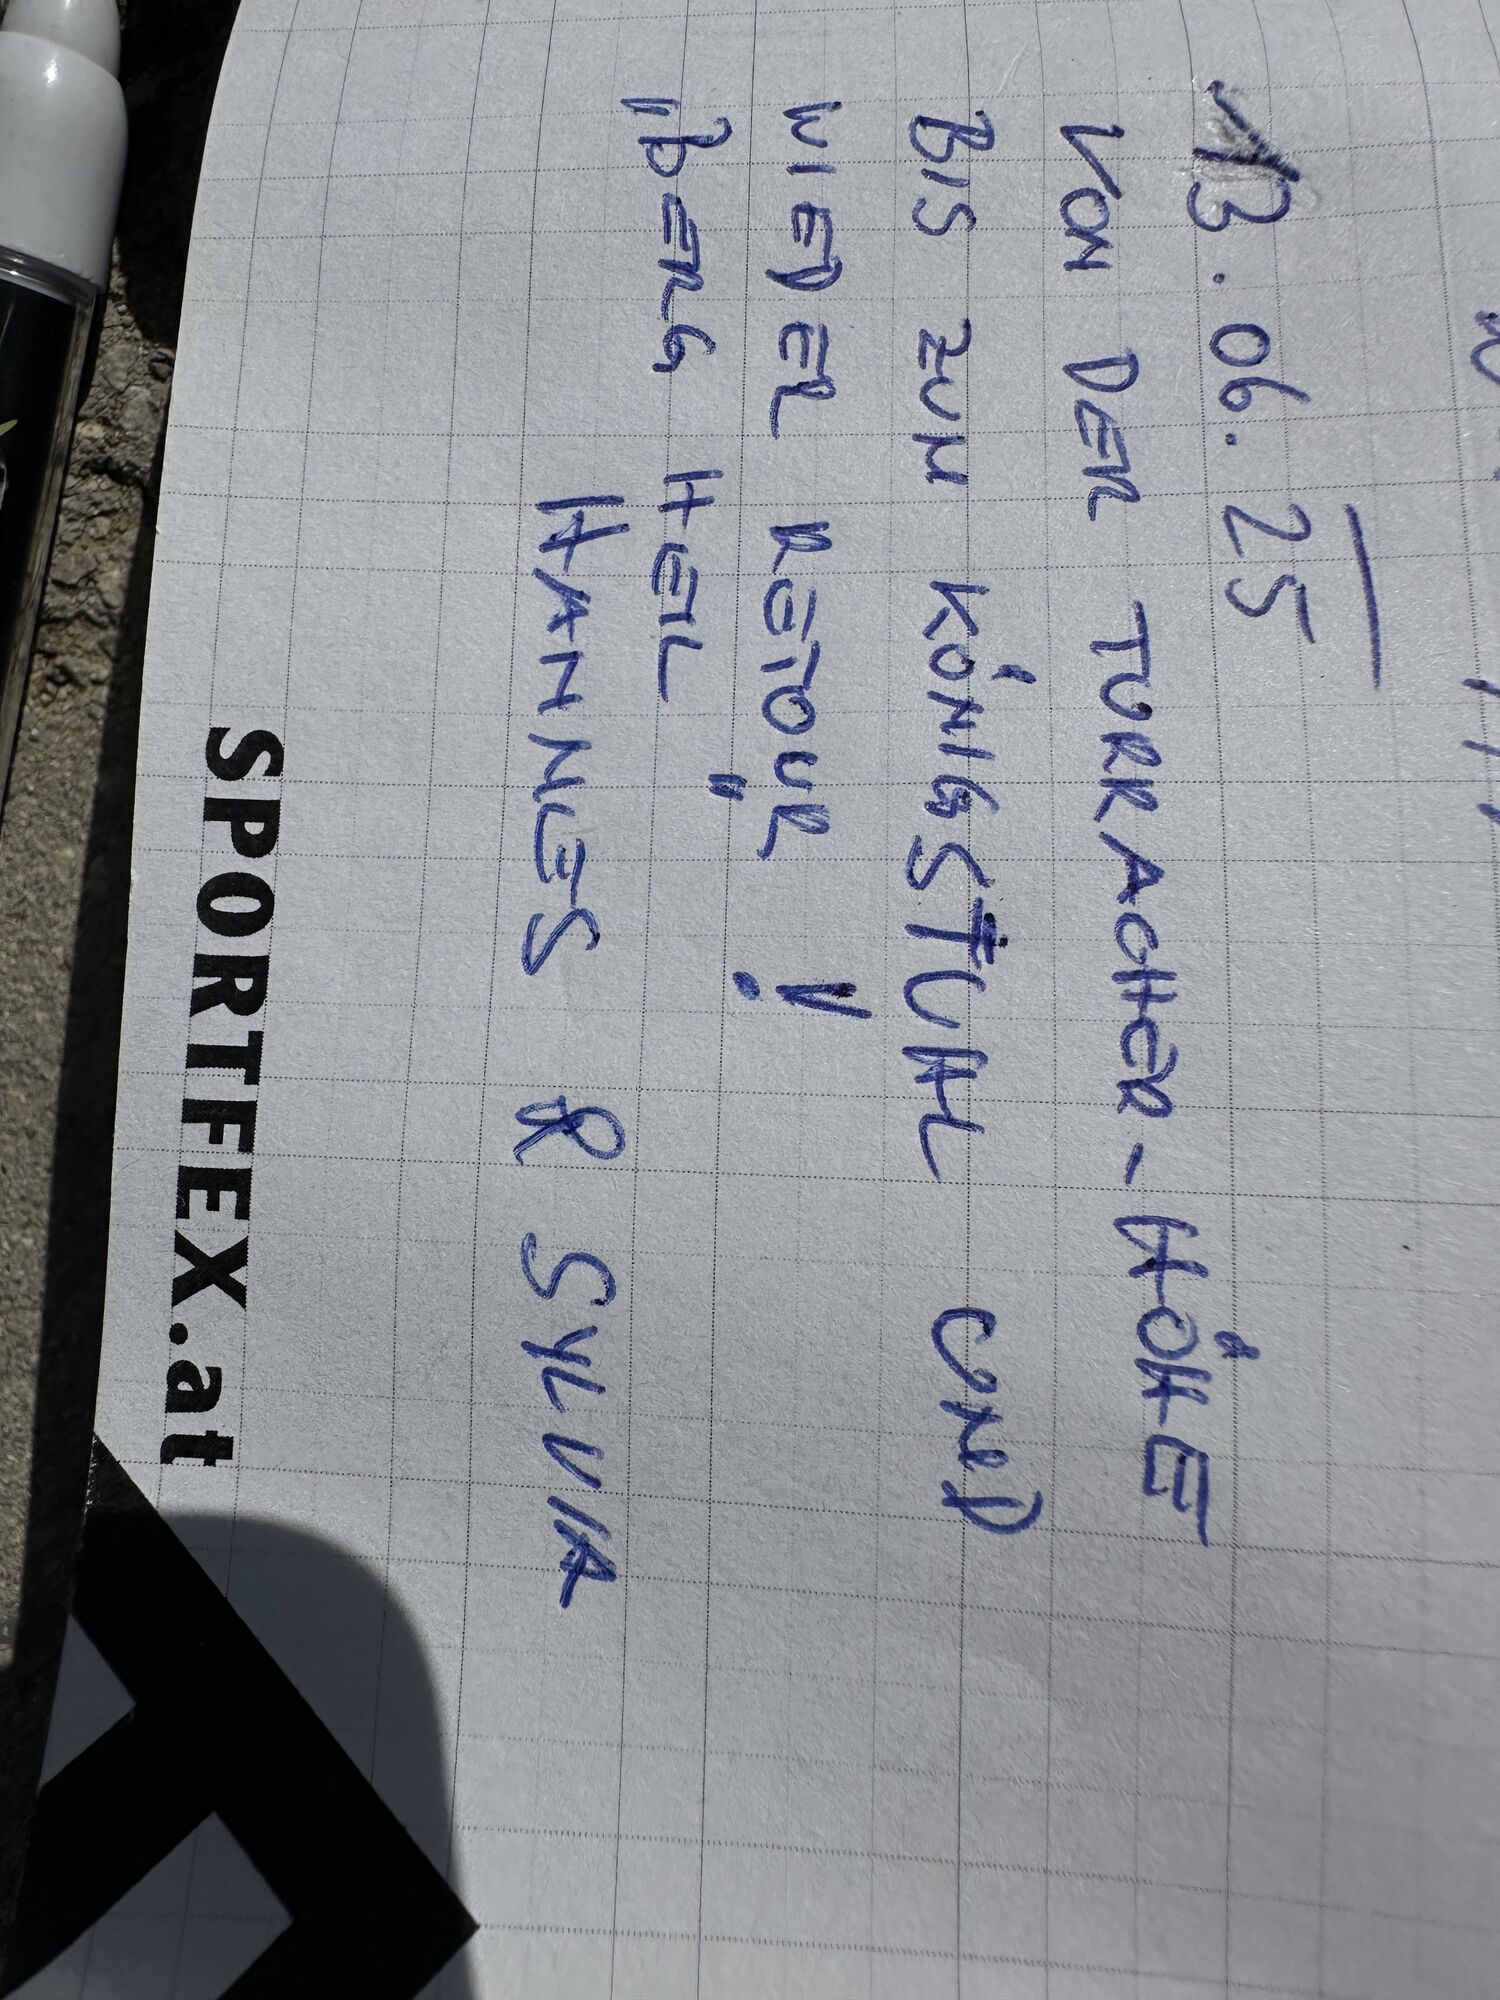 13.06.25
VON DER TURRACHER-HÖHE
BIS ZUM KÖNIGSTUHL UND
WIEDER RETOUR !
"BERG HEIL"
HANNES & SYLVIA
SPORTFEX.at